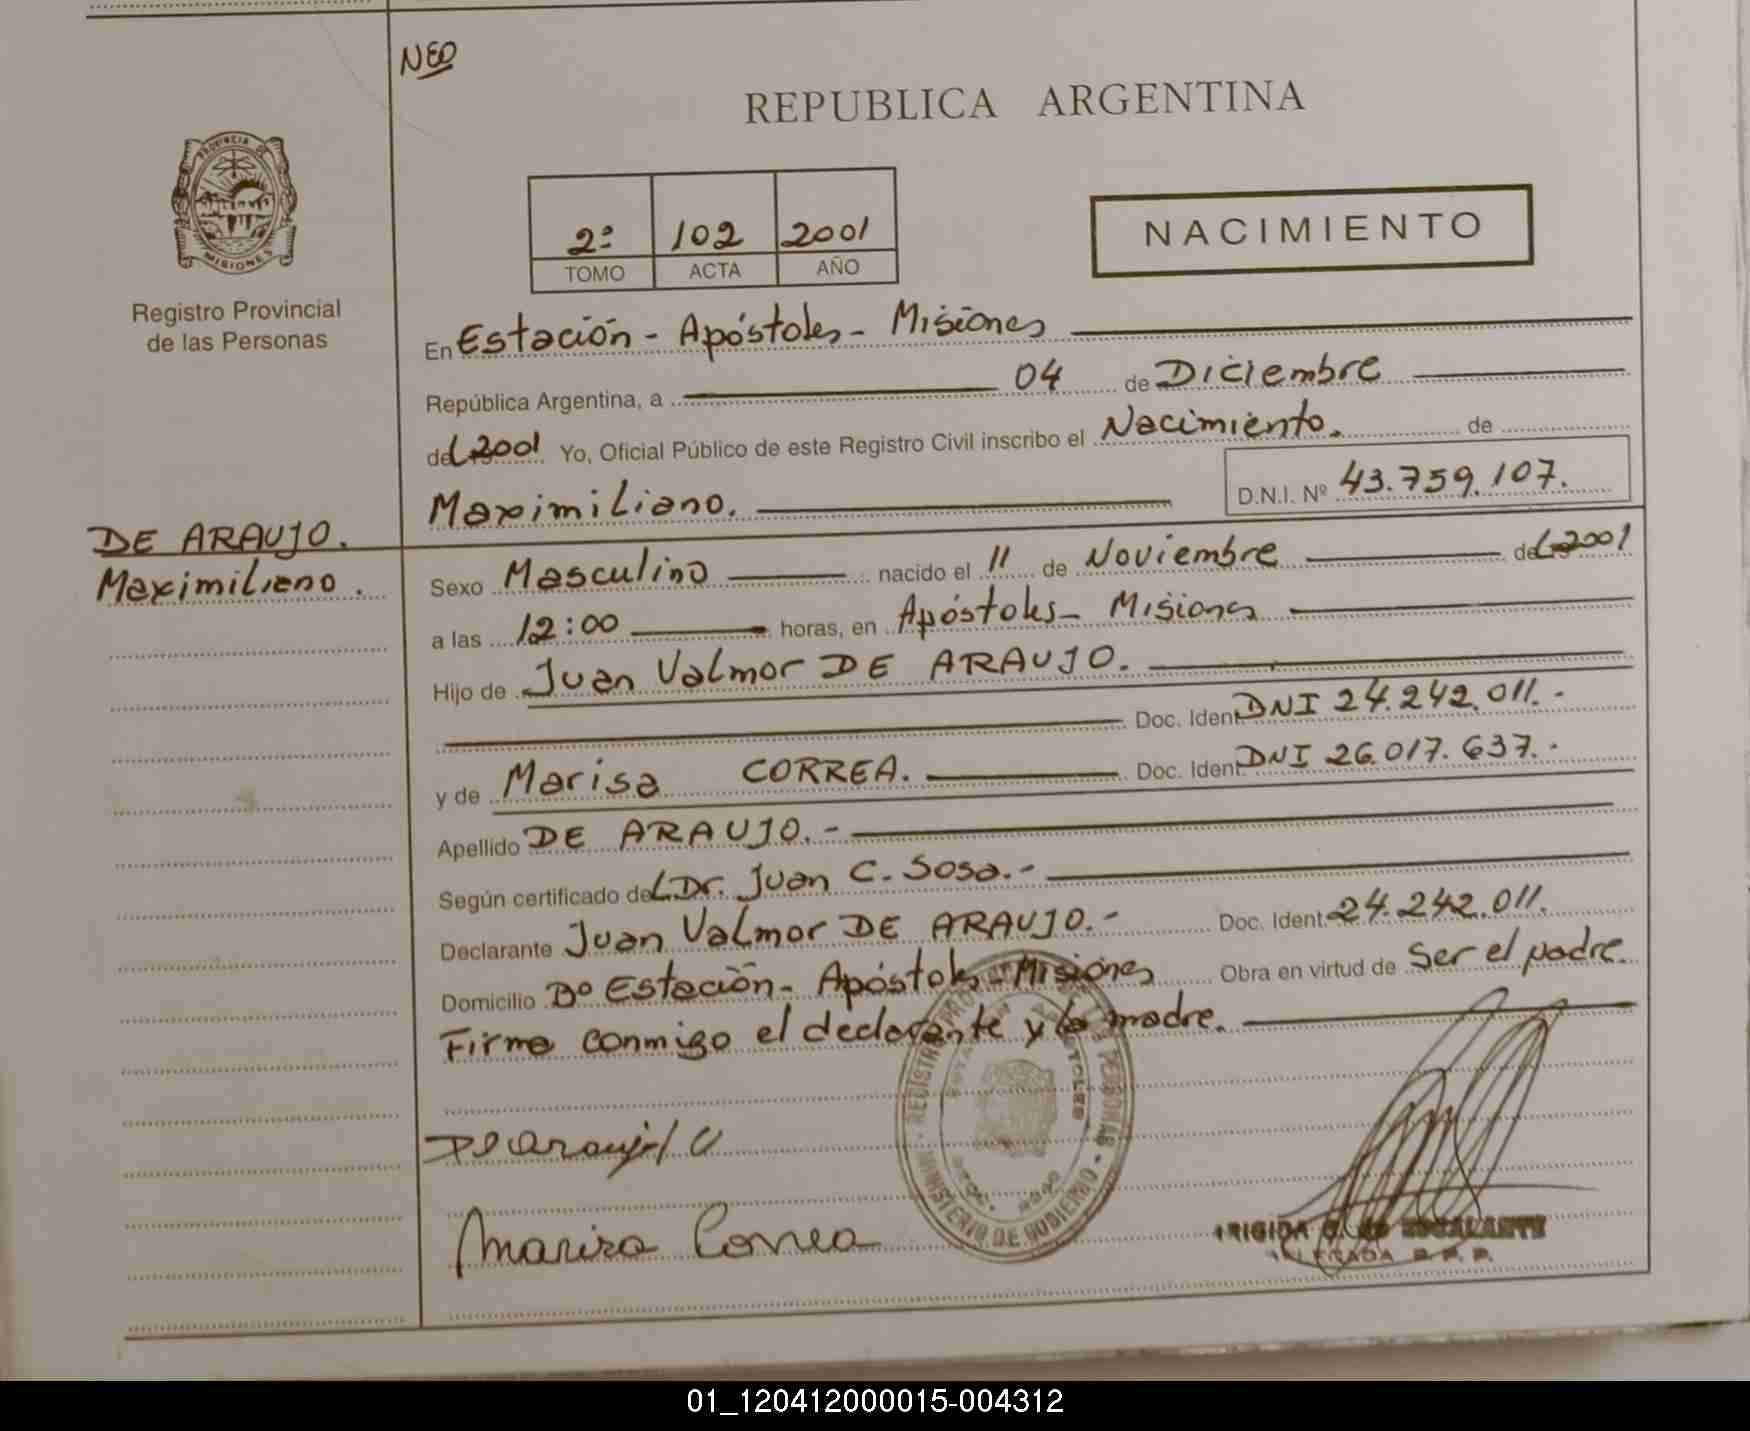 NEO
REPUBLICA ARGENTINA
PROVINCIA DE
MISIONES
2º 102 2001
TOMO ACTA AÑO
NACIMIENTO
Registro Provincial
de las Personas
En Estación - Apóstoles - Misiones
República Argentina, a 04 de Diciembre
del 2001 Yo, Oficial Público de este Registro Civil inscribo el Nacimiento. de
Maximiliano. D.N.I. Nº 43.759.107.
DE ARAUJO.
Maximiliano.
Sexo Masculino nacido el 11 de Noviembre del 2001
a las 12:00 horas, en Apóstoles - Misiones
Hijo de Juan Valmor DE ARAUJO.
Doc. Ident. DNI 24.242.011.-
y de Marisa CORREA. Doc. Ident. DNI 26.017.637.-
Apellido DE ARAUJO.-
Según certificado del Dr. Juan C. Sosa.-
Declarante Juan Valmor DE ARAUJO.- Doc. Ident. 24.242.011.
Domicilio Bº Estación - Apóstoles - Misiones Obra en virtud de Ser el padre.
Firma conmigo el declarante y la madre.
REGISTRO DE LAS PERSONAS
MINISTERIO DE GOBIERNO
De Araujo
Marisa Correa
ESCALANTE
DELEGADA R.P.P.
01_120412000015-004312